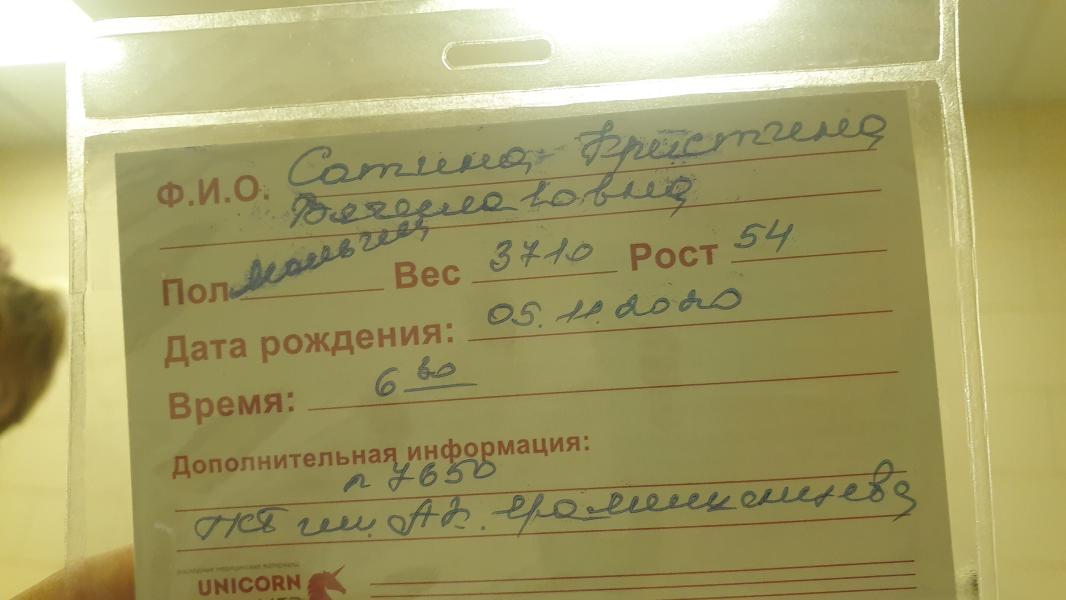 Ф.И.О. Сатина Кристина
Вячеславовна
Пол мальчик Вес 3710 Рост 54
Дата рождения: 05.11.2020
Время: 6
Дополнительная информация:
7650
ГКБ им.
UNICORN